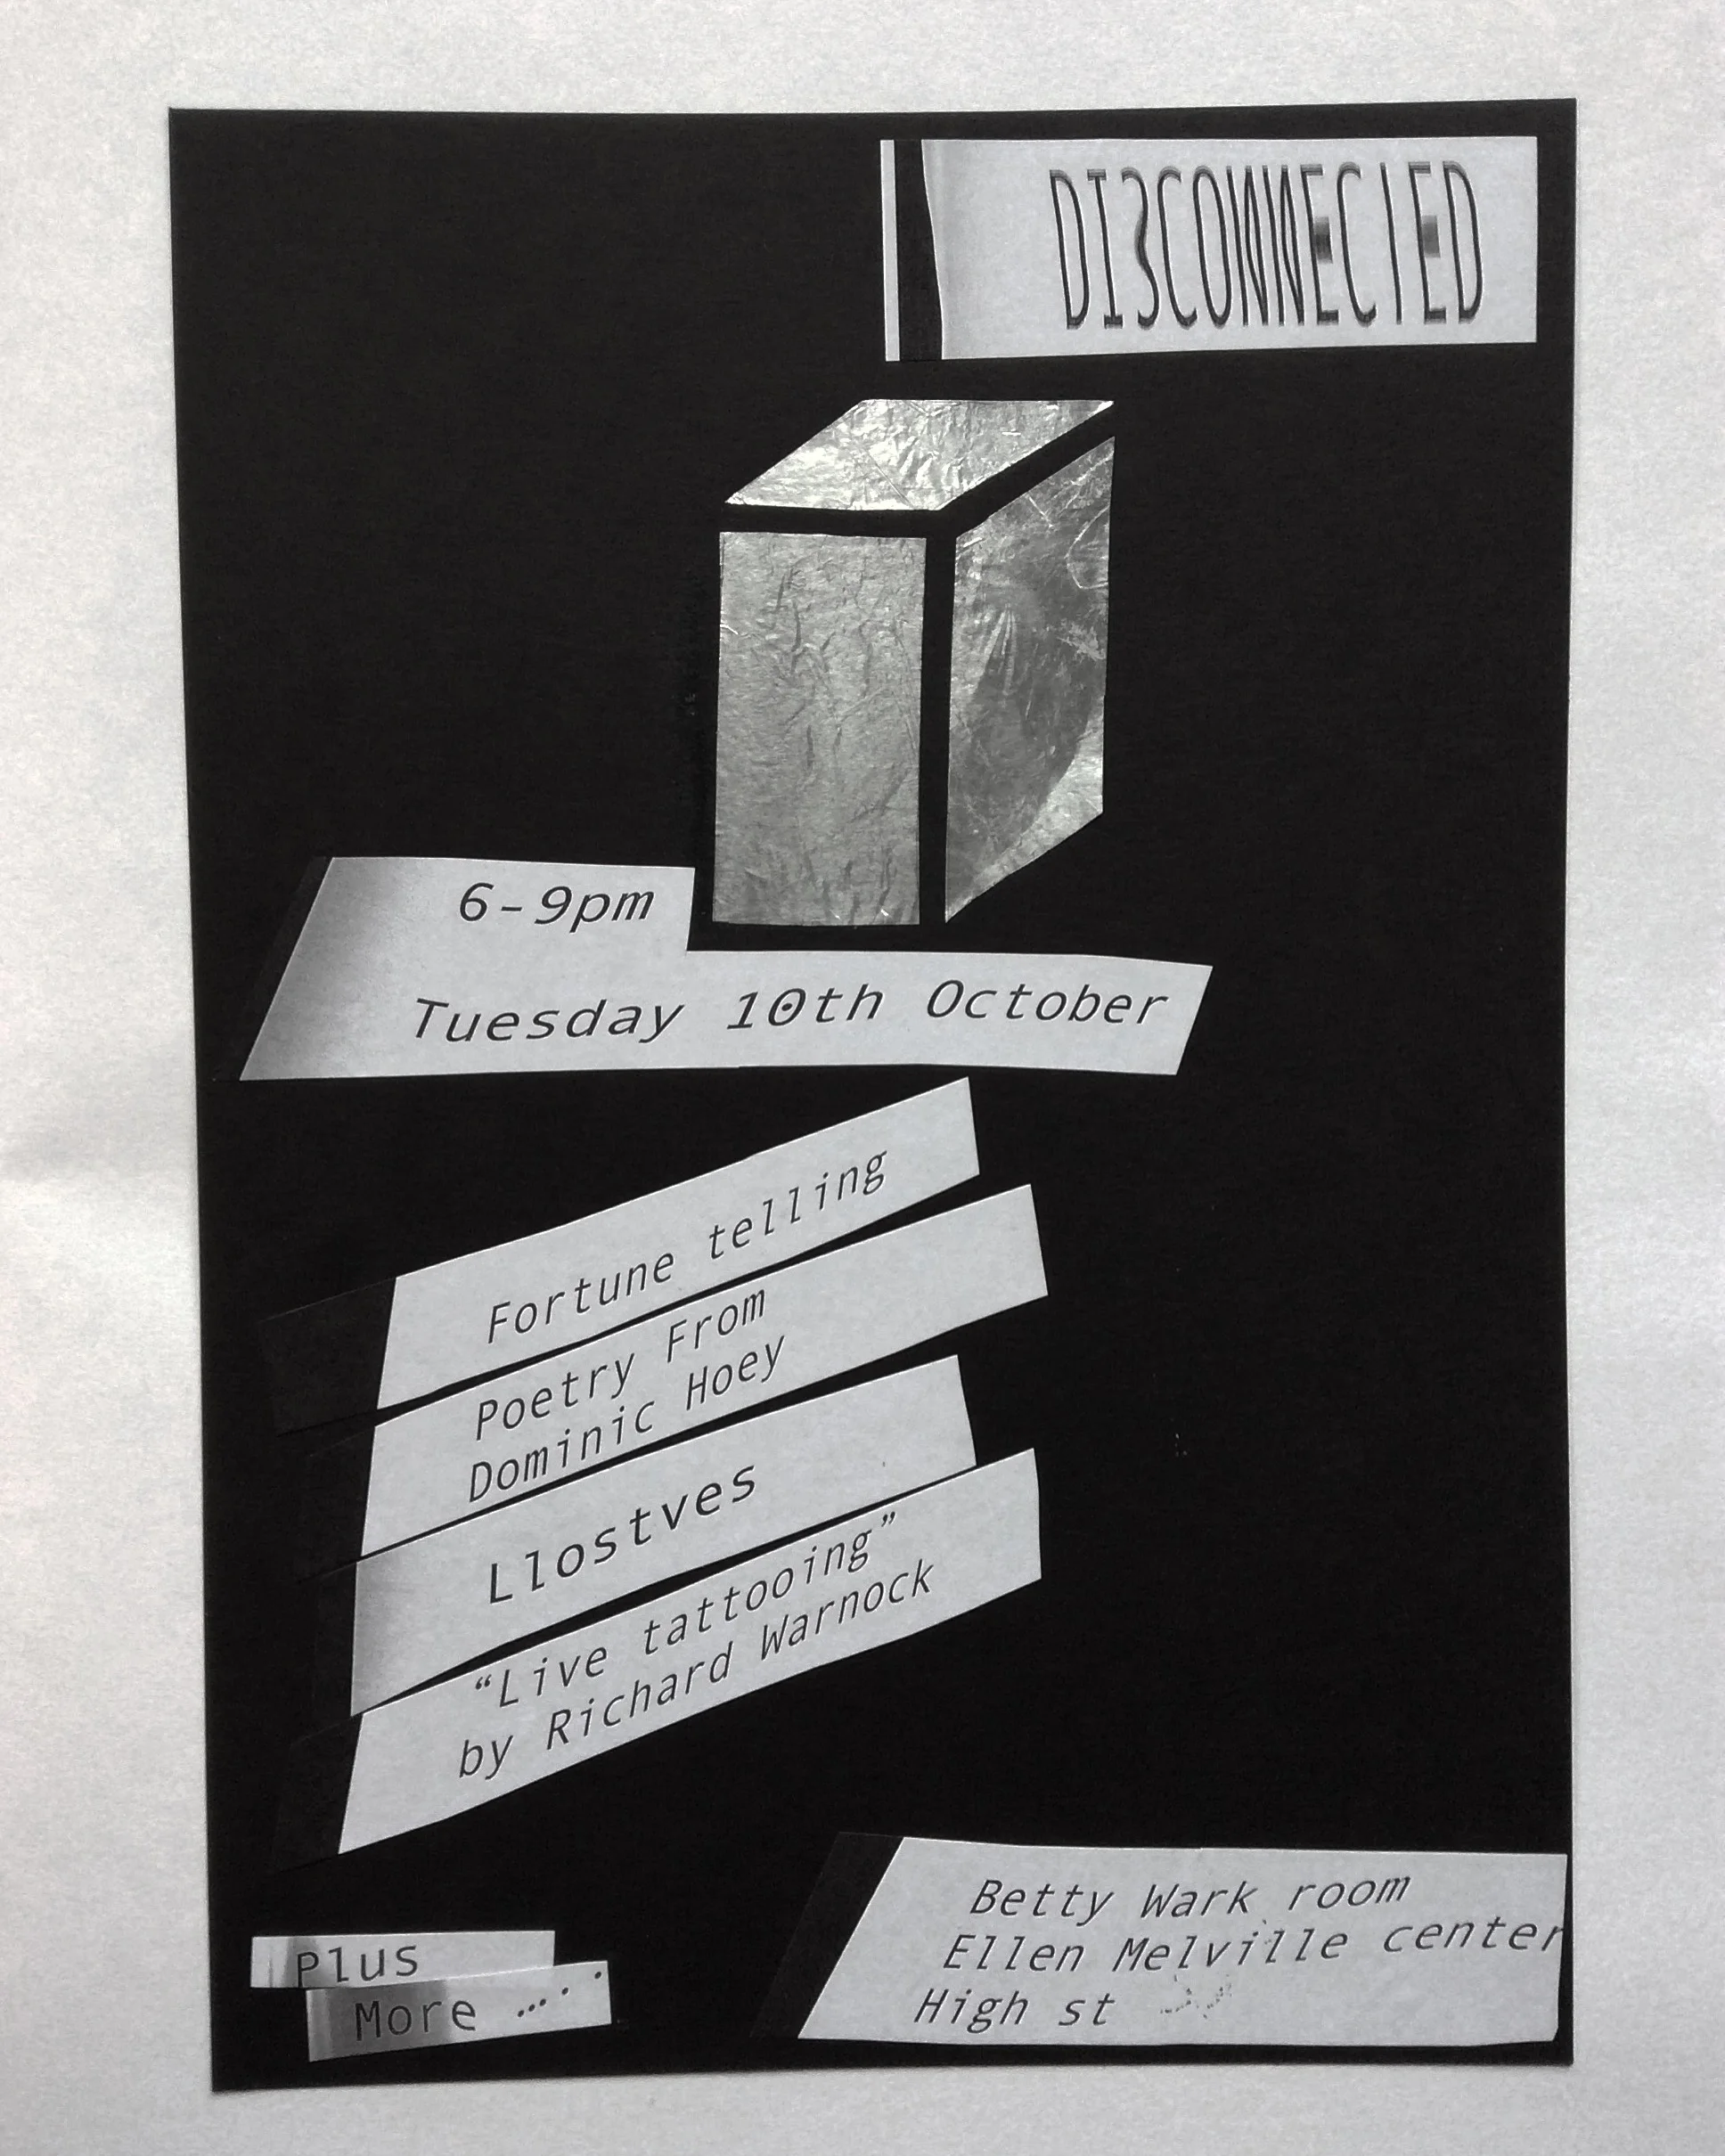 DISCONNECTED
6-9pm
Tuesday 10th October
Fortune telling
Poetry From
Dominic Hoey
Llostves
“Live tattooing”
by Richard Warnock
Plus
More .....
Betty Wark room
Ellen Melville center
High st